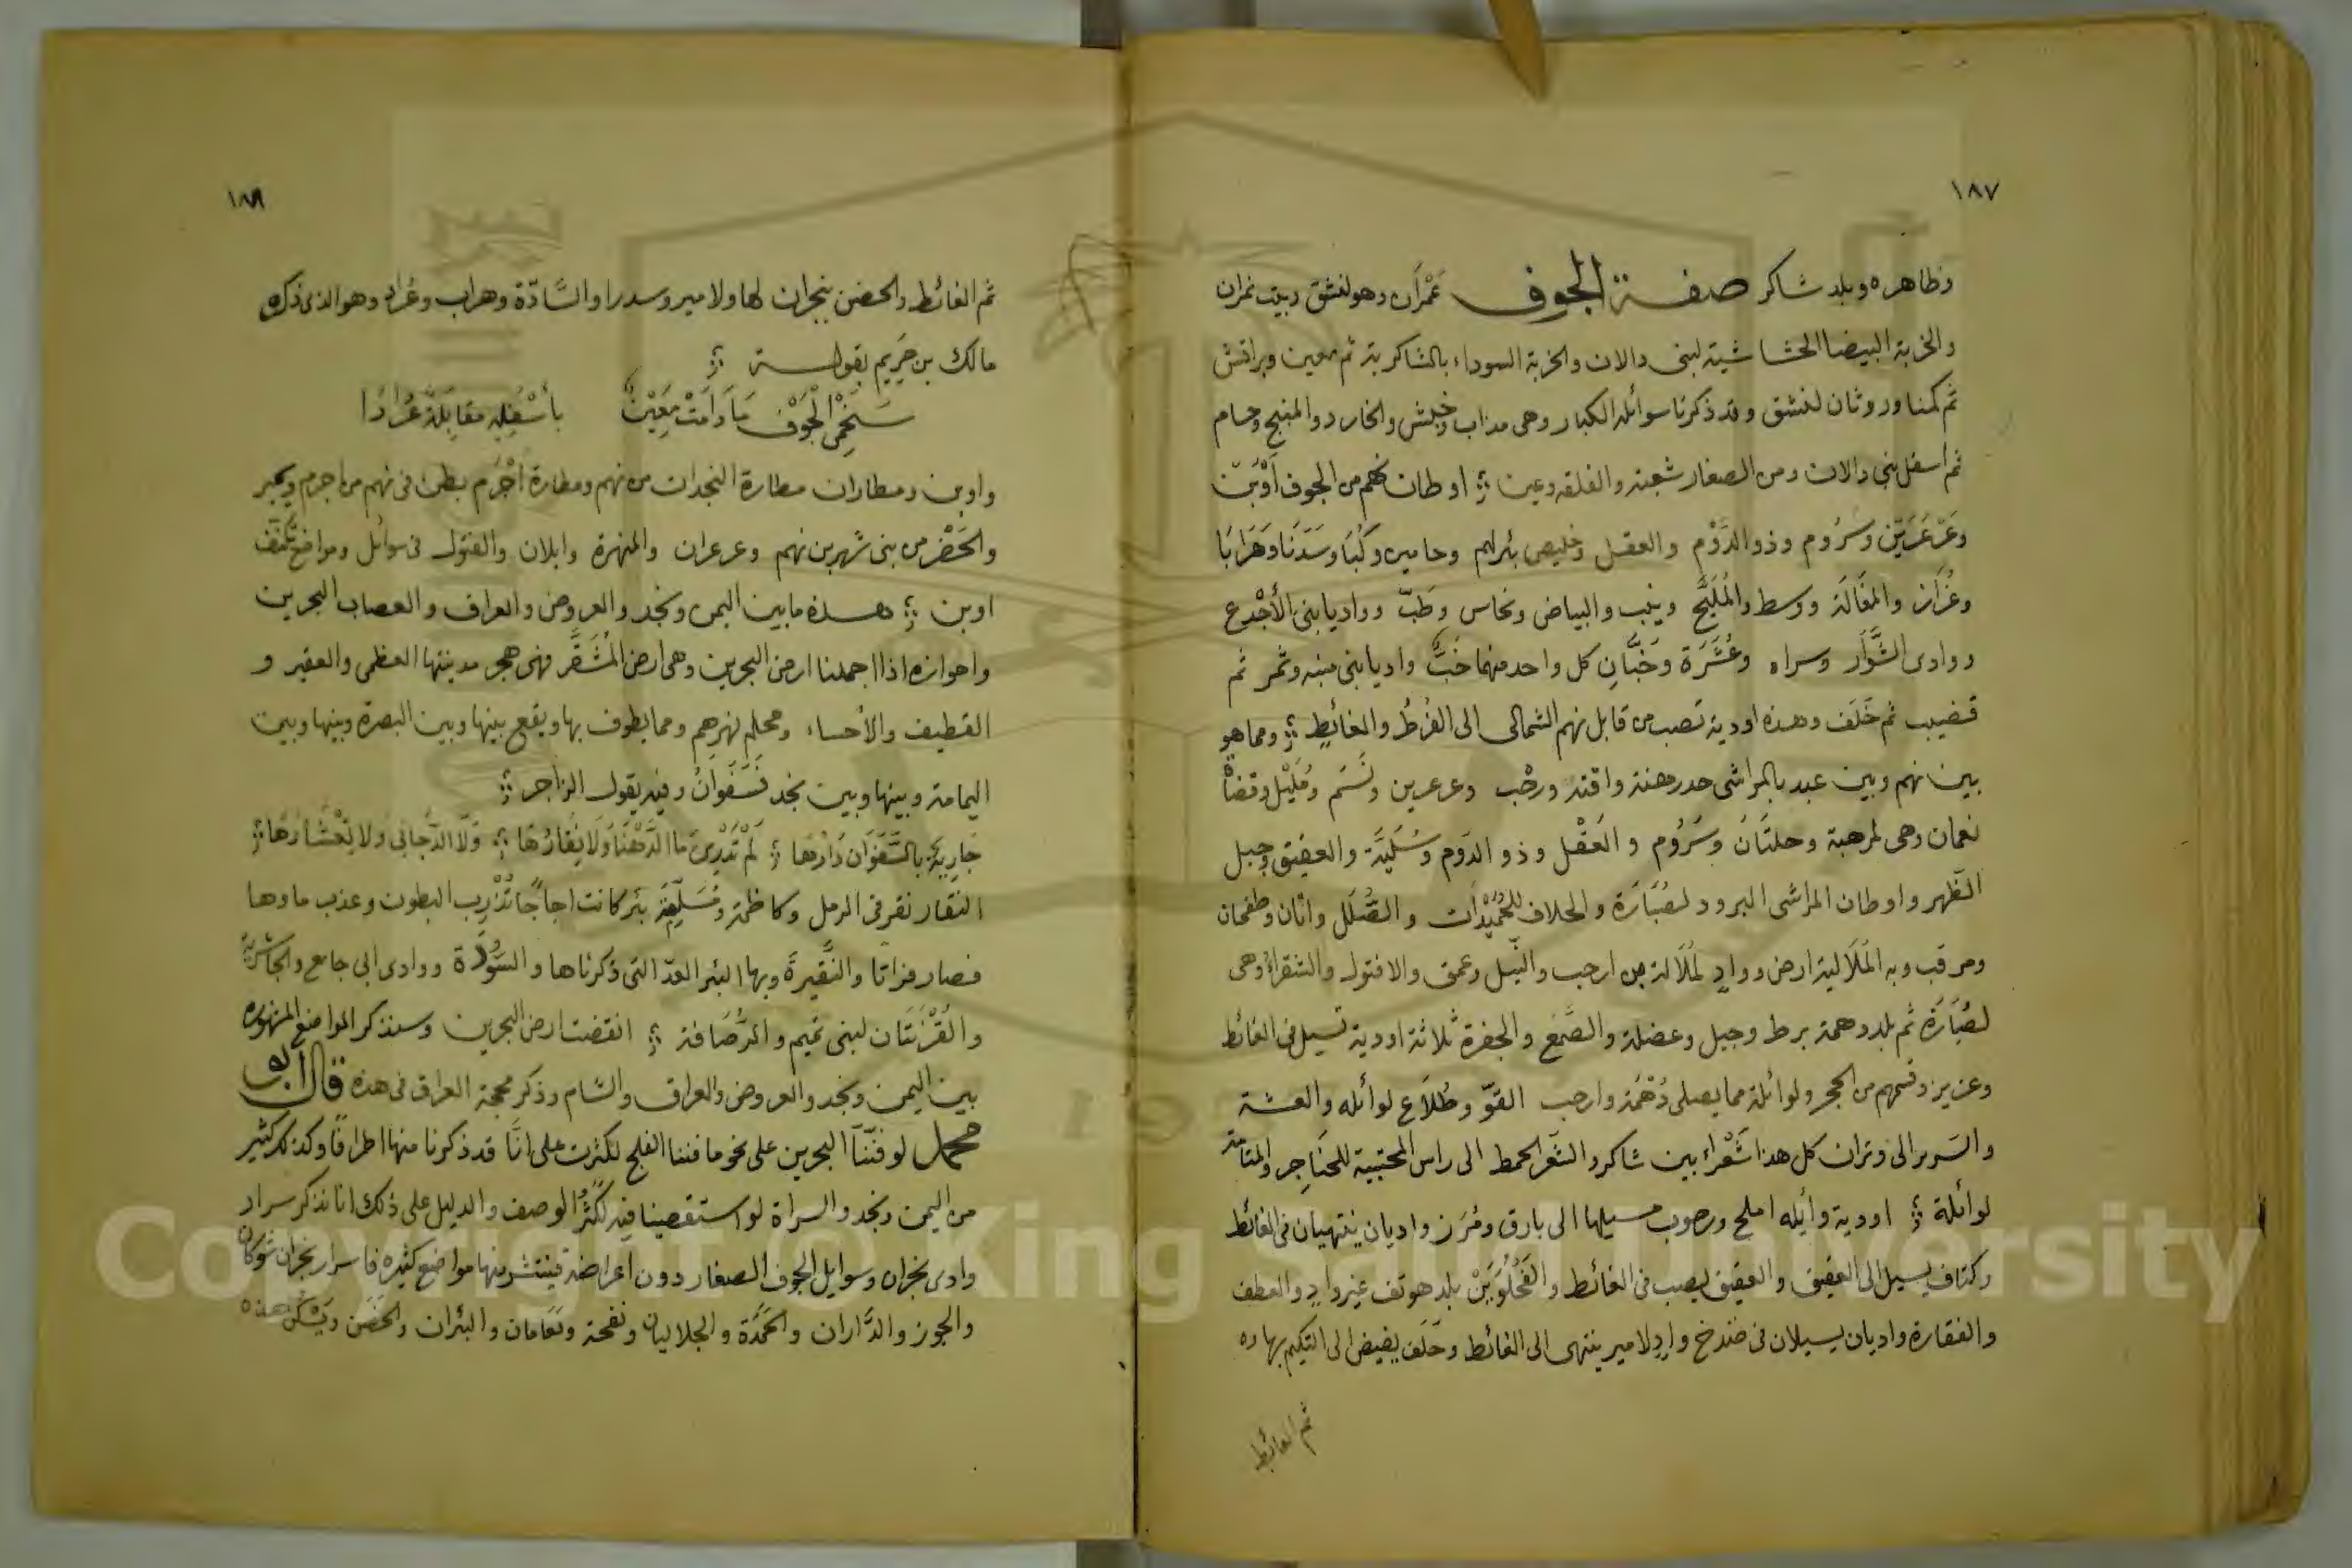 ١٨٧
وظاهره وبلد شاكر صفة الجوف عمران وهو لنشق وبيت نمران
والخربة البيضا الحشاشية لبنى دالان والخربة السوداء بالشاكرية ثم معين وبراقش
ثم كمنا وروثان لنشق وقد ذكرنا سوائله الكبار وهى مذاب وخبش والخارد والمنبج وحام
ثم اسفل بنى دالان ومن الصغار شعبته والفلقه وعين اوطان نهم من الجوف أوْبَن
وعَرْعَرَين وسَرُوم وذو الدَّوْم والعقل وخليص بئر لهم وحامير وكُبَا وسَدَنَا وهَرَابَا
وعُرَاز والمَغَالَة ووسط والمُلَيَّح وينب والبياض ونحاس وطَبّ وواديا بنى الأجْدع
ووادى الشَّوَّار وسراه وعُشَّرَة وخَبَّانِ كل واحد منهما خَبٌّ واديا بنى منبه وثمر ثم
قضيب ثم خَلَف وهذه اودية تصب من قابل نهم الشمالى الى الفُرطُ والغائطِ ومما هو
بين نهم وبين عبد بالمراشى حدر مهنة واقته ورحْب وعرعرين ونَسَم ومُلَيْل وقضأ
نعمان وهى لمرهبة وحلتَانَ وسَرُوم والعَقْل وذو الدوَم وسُلَيَّة والعقيق وجبل
الظهر واوطان المراشى البرود لصُبَارَة والحلاف للحُمَيْدَات والضُّلَل واثان وطفحان
ومرقب وبه المَلَالية ارض وواد لمُلَالة من ارحب والنّيل وعمق والافتول والشقراء وهى
لصُبَارَة ثم بلد وهمة برط وجبل وعضلة والصَّمَع والجفرة ثلاثة اودية تسيل فى الغائط
وعزيز وقسمهم من الحجر ولوائلة مما يصلى دُهْمَة وارحب القوّ وطُلَاع لوائله والعشة
والسرير الى وتران كل هذا شَعْراء بين شاكر والثغر الحمط الى راس المحتبية للحنَاجر والمتامة
لوائلة اودية وأيله املح ورصوب مسيلها الى بارق ومُرَز واديان ينتهيان فى الغائط
وكتاف يسيل الى العقيق والعقيق يصب فى الغائط والفَحْلُوَيَنْ بلد هو تف غير وادٍ والعطف
والفقارة واديان يسيلان فى ضدخ وادٍ لامير ينتهى الى الغائط وحَلَف يفيض الى التكيم بهاده
ثم الغائط
١٨٨
ثم الغائط والحضن بنجران لها ولامير وسدرا والسَّادّة وهراب وعُراد وهو الذى ذكره
مالك بن حَرِيم بقوله
سَنَحْمِى الجَوْف مَا دَامَتْ مَعِيْنٌ بأَسْفَلِه مقابِلَة عُرَادَا
واوبن ومطاران مطارة النجدات من نهم ومطارة اجْرَم بطن فى نهم من اجرم ويحبر
والحَضْر من بنى شهر بن نهم وعرعران والمنهرة وابلان والفتول فى سوائل ومواضع تكنف
اوبن هذه ما بين اليمن ونجد والعروض والعراق والعصاب البحرين
واحوازه اذا اجملنا ارض البحرين وهى ارض المُشَقَّر فهى هجر مدينتها العظمى والعقير و
القطيف والأحساء ومحلم نهرهم ومما يطوف بها ويقع بينها وبين البصرة وبينها وبين
اليمامة وبينها وبين نجد فَسَفَوَانُ وفيه يقول الراجز
جَارِيَةٌ بالسَّفَوَان دَارُهَا لَمْ تَدْرِىَ مَا الدَّهْنَا وَلَا نِقَارُهَا وَلَا الدَّجَانِى ولا تِعْشَارُها
النقار نقر فى الرمل وكاظمة ومُسَلَّحَة بئر كانت اجاجًا تُذْرِب البطون وعذب ماوها
فصار فراتا والنُّقَيرةَ وبها البئر العدّ التى ذكرناها والسُّوْدَة ووادى ابى جامع والجاشرية
والقُرْنَتَان لبنى تميم والرُّصَافة انقضت ارض البحرين وسنذكر المواضع المشهوره
بين اليمن ونجد والعروض والعراق والشام وذكر محجة العراق فى هذه قال ابو
محمد لو فننّا البحرين على نحو ما فننا الفلج لكثرت على انّا قد ذكرنا منها اطرافًا وكذلك كثير
من اليمن ونجد والسراة لو استقصينا فيه لكثُر الوصف والدليل على ذلك انا نذكر سرار
وادى نجران وسوايل الجوف الصغار دون اعراضه فينتشر منها مواضع كثيره فاسرار نجران شوكان
والجوز والدَّاران والحَمَدَة والجلاليان ونفحة ونَعَامان والبئران والحَضَن ويَسْكن هذه